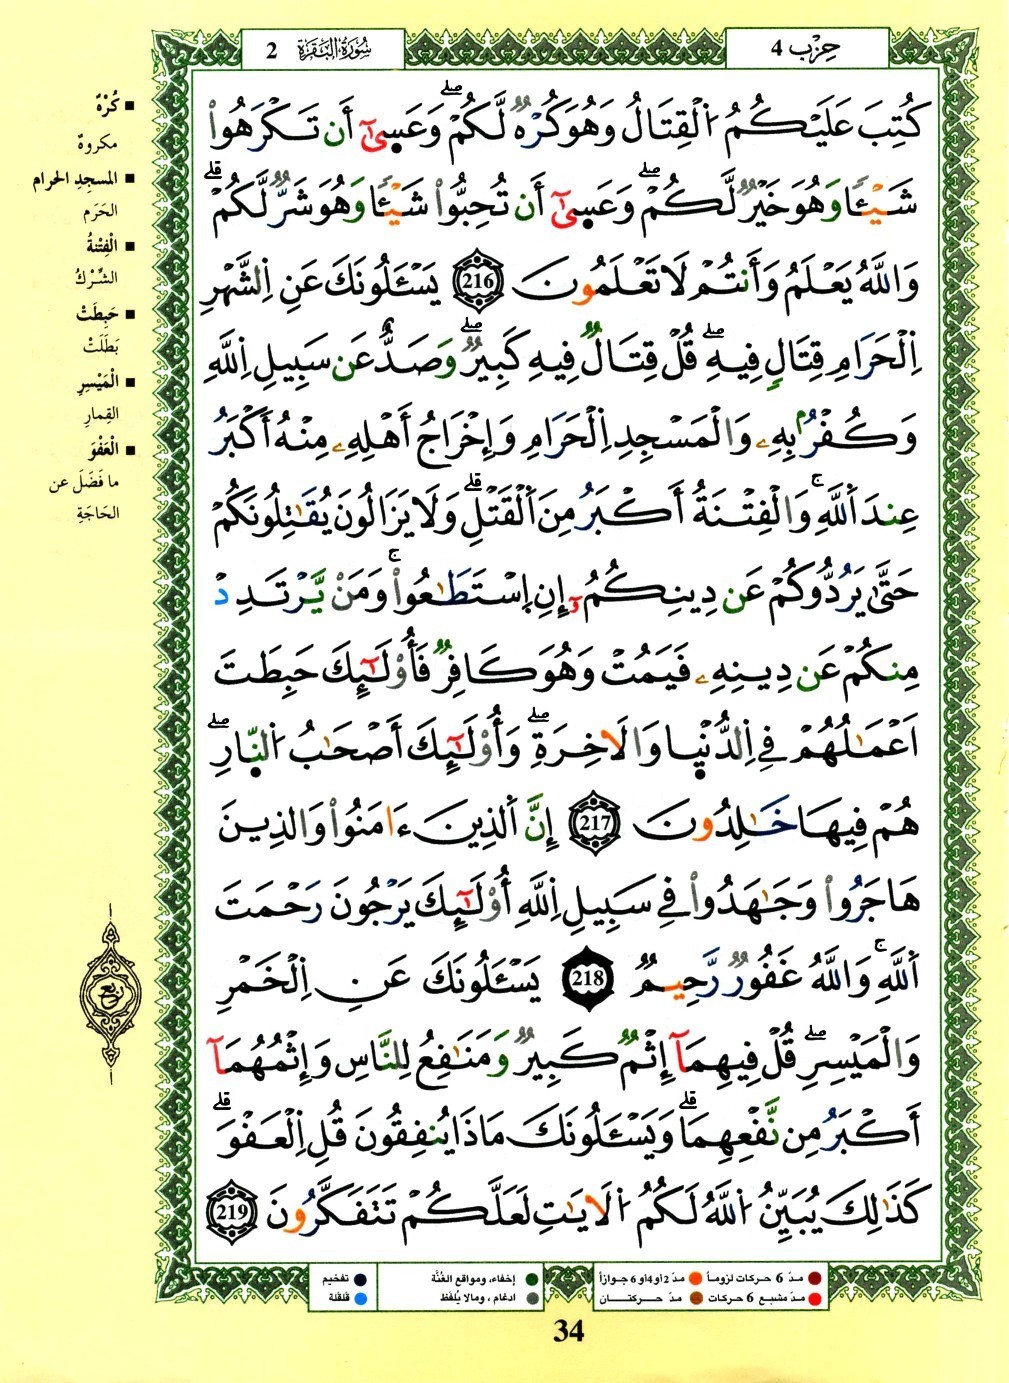 حِزْب 4
سُورَةُ البَقَرَة 2
كُتِبَ عَلَيْكُمُ اُ۬لْقِتَالُ وَهُوَ كُرْهٞ لَّكُمْۖ وَعَس۪ىٰٓ أَن تَكْرَهُواْ
شَيْـٔاٗ وَهُوَ خَيْرٞ لَّكُمْۖ وَعَس۪ىٰٓ أَن تُحِبُّواْ شَيْـٔاٗ وَهُوَ شَرّٞ لَّكُمْۗ
وَاللَّهُ يَعْلَمُ وَأَنتُمْ لَا تَعْلَمُونَ 216 يَسْـَٔلُونَكَ عَنِ اِ۬لشَّهْرِ
اِ۬لْحَرَامِ قِتَالٖ فِيهِۖ قُلْ قِتَالٞ فِيهِ كَبِيرٞۖ وَصَدٌّ عَن سَبِيلِ اِ۬للَّهِ
وَكُفْرُۢ بِهِۦ وَالْمَسْجِدِ اِ۬لْحَرَامِ وَإِخْرَاجُ أَهْلِهِۦ مِنْهُ أَكْبَرُ
عِندَ اَ۬للَّهِۚ وَالْفِتْنَةُ أَكْبَرُ مِنَ اَ۬لْقَتْلِۗ وَلَا يَزَالُونَ يُقَٰتِلُونَكُمْ
حَتَّىٰ يَرُدُّوكُمْ عَن دِينِكُمُۥٓ إِنِ اِ۪سْتَطَٰعُواْۚ وَمَنْ يَّرْتَدِدْ
مِنكُمْ عَن دِينِهِۦ فَيَمُتْ وَهُوَ كَافِرٞ فَأُوْلَٰٓئِكَ حَبِطَتَ
اَعْمَٰلُهُمْ فِي اِ۬لدُّنْي۪ا وَالَاخِرَةِۖ وَأُوْلَٰٓئِكَ أَصْحَٰبُ اُ۬لنّ۪ارِۖ
هُمْ فِيهَا خَٰلِدُونَ 217 إِنَّ اَ۬لذِينَ ءَامَنُواْ وَالذِينَ
هَاجَرُواْ وَجَٰهَدُواْ فِي سَبِيلِ اِ۬للَّهِ أُوْلَٰٓئِكَ يَرْجُونَ رَحْمَتَ
اَ۬للَّهِۚ وَاللَّهُ غَفُورٞ رَّحِيمٞ 218 يَسْـَٔلُونَكَ عَنِ اِ۬لْخَمْرِ
وَالْمَيْسِرِۖ قُلْ فِيهِمَآ إِثْمٞ كَبِيرٞ وَمَنَٰفِعُ لِلنَّاسِ وَإِثْمُهُمَآ
أَكْبَرُ مِن نَّفْعِهِمَاۗ وَيَسْـَٔلُونَكَ مَاذَا يُنفِقُونَ قُلِ اِ۬لْعَفْوَۗ
كَذَٰلِكَ يُبَيِّنُ اُ۬للَّهُ لَكُمُ اُ۬لَايَٰتِ لَعَلَّكُمْ تَتَفَكَّرُونَ 219
■ كُرْهٌ
مكروهٌ
■ المسجِدِ الحرام
الحَرَم
■ الْفِتْنةُ
الشِّرْكُ
■ حَبِطَتْ
بَطَلَتْ
■ الْمَيْسِرِ
القِمارِ
■ الْعَفْوَ
ما فَضَلَ عن
الحَاجَةِ
ربع
مدّ 6 حركات لزوماً
مدّ 2 أو 4 أو 6 جوازاً
مدّ مشبع 6 حركات
مدّ حركتان
إخفاء، ومواقع الغُنَّة
ادغام ، ومالا يُلفَظ
تفخيم
قلقلة
34